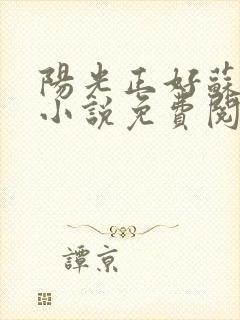 陽光正好蘇
小說免費閱
譚京